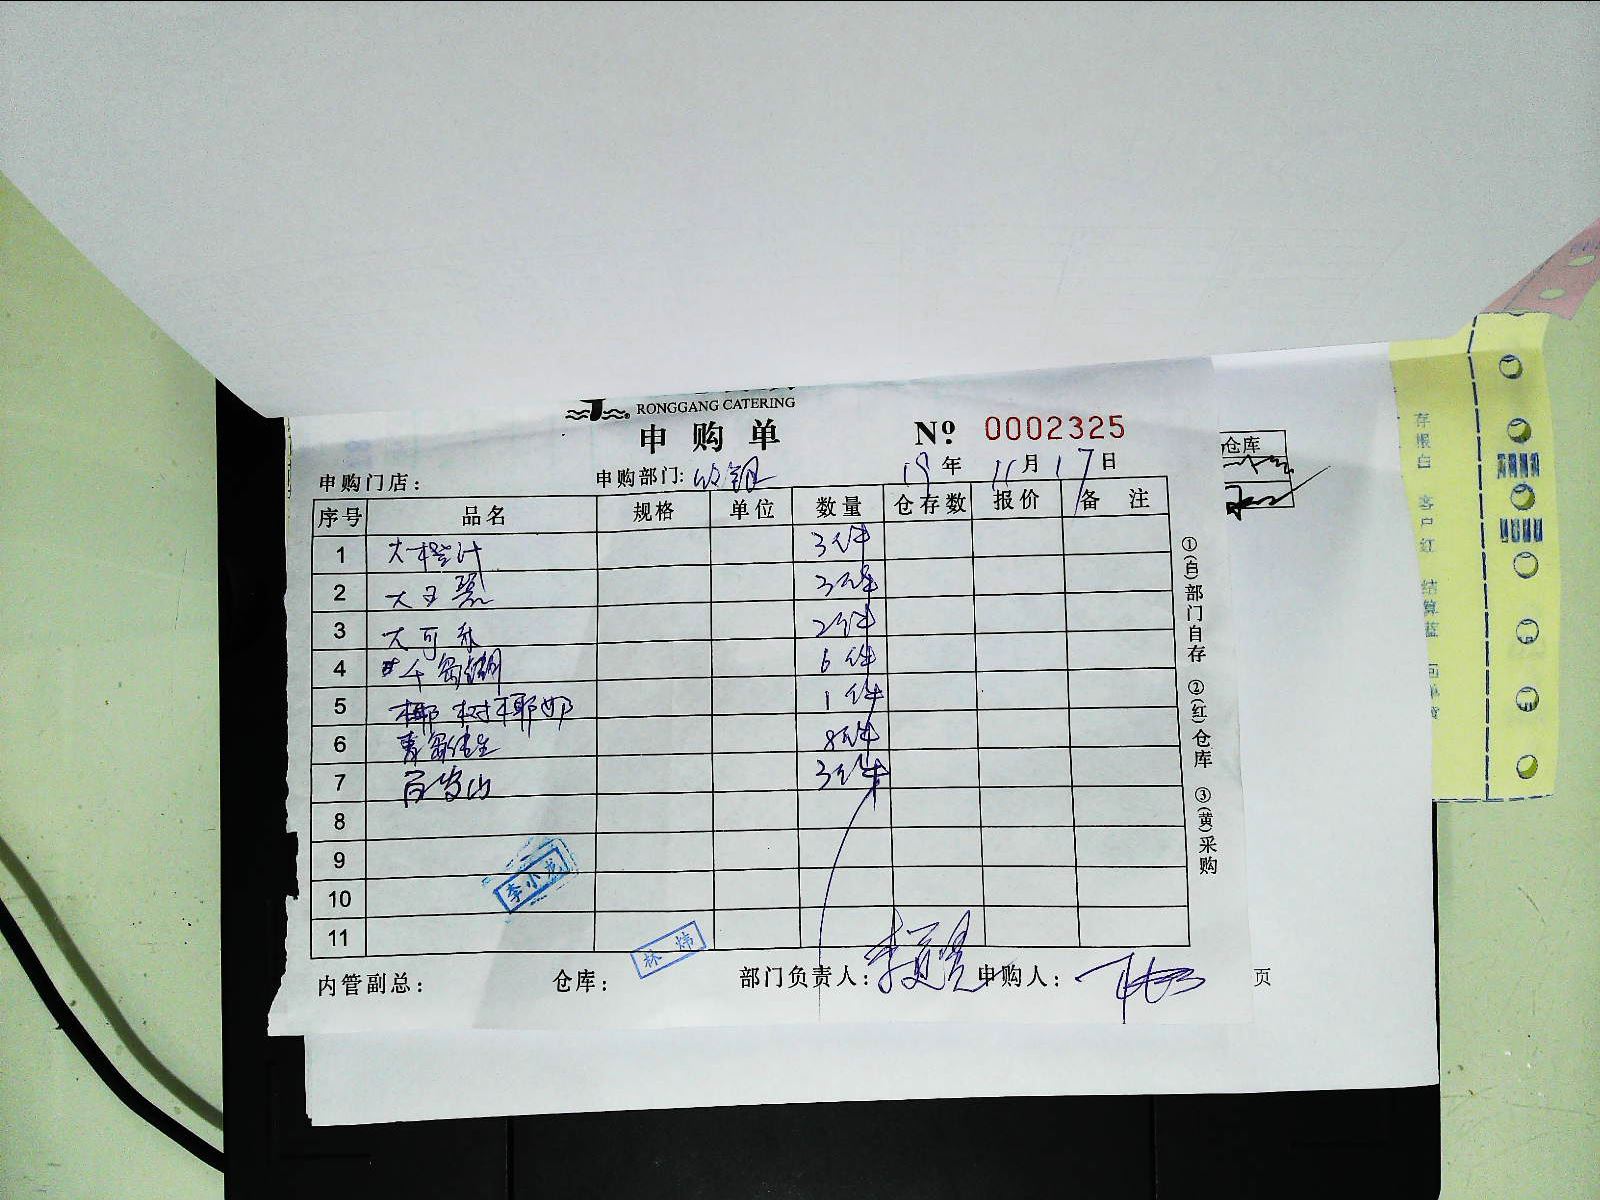 RONGGANG CATERING
申购单 Nº 0002325
申购门店: 申购部门: 19年 11月 17日
序号 品名 规格 单位 数量 仓存数 报价 备 注
1 大橙汁 3件
2 大王 3件
3 大可乐 2件
4 6件
5 椰树椰奶 1件
6 8件
7 百岁山 3件
8
9
10
11
李小龙
林炜
内管副总: 仓库: 部门负责人: 申购人:
①(白)部门自存 ②(红)仓库 ③(黄)采购
仓库
页
存根白 客户红 结算蓝